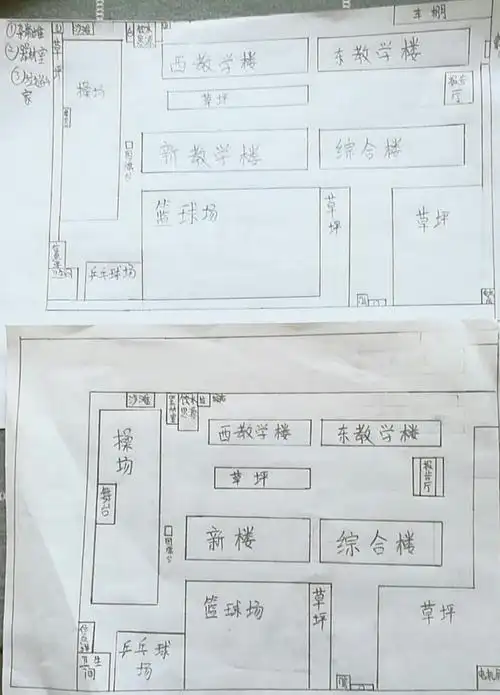 沙滩
车棚
①
②器材室
③
家
草坪
操场
西教学楼
东教学楼
报告厅
草坪
新教学楼
综合楼
篮球场
草坪
草坪
乒乓球场
沙滩
饮水思源
操场
西教学楼
东教学楼
舞台
草坪
报告厅
新楼
综合楼
篮球场
草坪
草坪
卫生间
乒乓球场